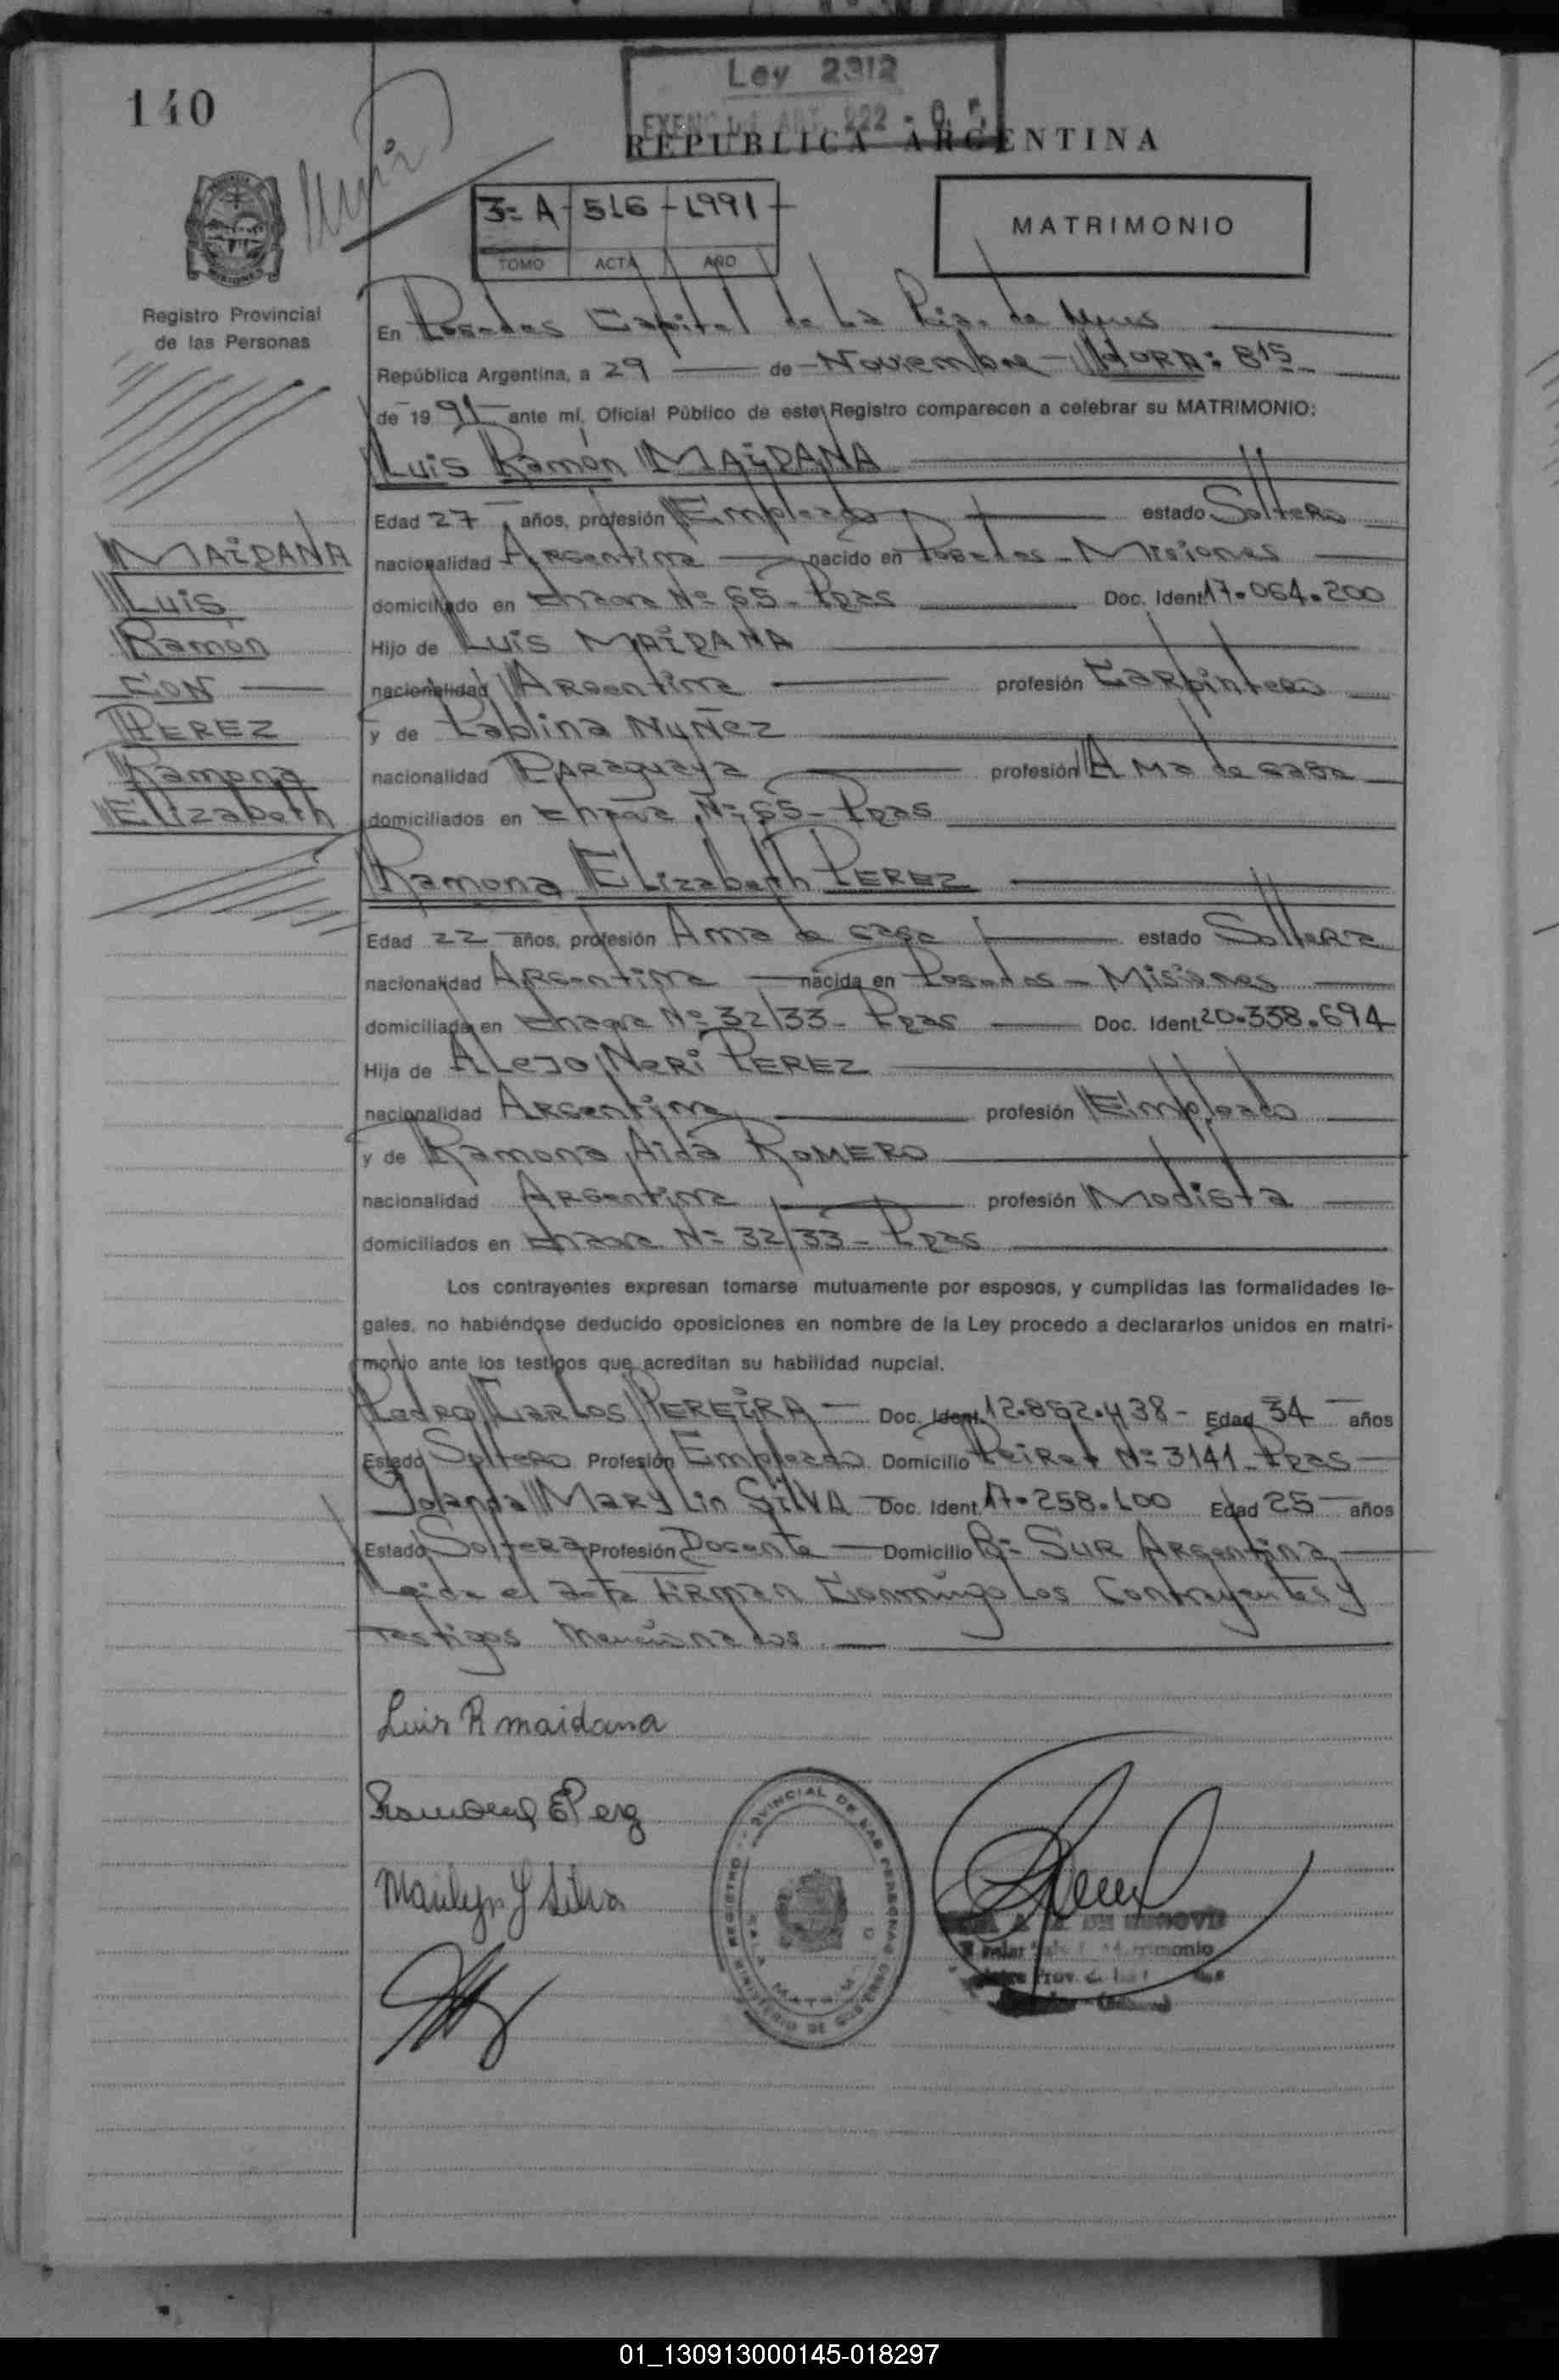 Ley 2312
140
REPUBLICA ARGENTINA
3= A - 516 - 1991
TOMO ACTA AÑO
MATRIMONIO
Registro Provincial
de las Personas
En Posadas Capital de La Pcia. de Mnes
República Argentina, a 29 de Noviembre HORA: 8 15
de 1991 ante mí, Oficial Público de este Registro comparecen a celebrar su MATRIMONIO:
Luis Ramón MAIDANA
Edad 27 años, profesión Empleado estado Soltero
nacionalidad Argentina nacido en Posadas - Misiones
domiciliado en Chacra Nº 65 - Pdas Doc. Ident. 17.064.200
Hijo de Luis MAIDANA
nacionalidad Argentina profesión Carpintero
y de Pablina Nuñez
nacionalidad Paraguaya profesión Ama de casa
domiciliados en Chacra Nº 65 - Pdas
MAIDANA
Luis
Ramón
CON
PEREZ
Ramona
Elizabeth
Ramona Elizabeth PEREZ
Edad 22 años, profesión Ama de casa estado Soltera
nacionalidad Argentina nacida en Posadas - Misiones
domiciliada en Chacra Nº 32/33 - Pdas Doc. Ident. 20.338.694
Hija de Alejo Neri PEREZ
nacionalidad Argentina profesión Empleado
y de Ramona Aida ROMERO
nacionalidad Argentina profesión Modista
domiciliados en Chacra Nº 32/33 - Pdas
Los contrayentes expresan tomarse mutuamente por esposos, y cumplidas las formalidades le-
gales, no habiéndose deducido oposiciones en nombre de la Ley procedo a declararlos unidos en matri-
monio ante los testigos que acreditan su habilidad nupcial.
Pedro Carlos PEREIRA - Doc. Ident. 12.852.438 - Edad 34 años
Estado Soltero Profesión Empleado Domicilio Peiret Nº 3141 - Pdas
Yolanda Mary Lin SILVA Doc. Ident. 17.258.100 Edad 25 años
Estado Soltera Profesión Docente Domicilio Bº Sur Argentina
Leída el acta FIRMAN Conmigo Los Contrayentes y
testigos mencionados
Luis R maidana
Ramona E Perez
Marilyn Y Silva
01_130913000145-018297